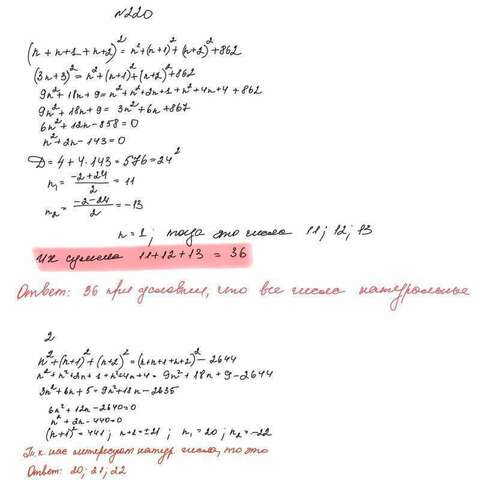 №220
(n + n+1 + n+2)² = n² + (n+1)² + (n+2)² + 862
(3n+3)² = n² + (n+1)² + (n+2)² + 862
9n² + 18n + 9 = n² + n² + 2n + 1 + n² + 4n + 4 + 862
9n² + 18n + 9 = 3n² + 6n + 867
6n² + 12n - 858 = 0
n² + 2n - 143 = 0
D = 4 + 4·143 = 576 = 24²
n₁ = (-2+24)/2 = 11
n₂ = (-2-24)/2 = -13
n = 1; тогда это числа 11; 12; 13
Их сумма 11+12+13 = 36
Ответ: 36 при условии, что все числа натуральные
2
n² + (n+1)² + (n+2)² = (n+n+1+n+2)² - 2644
n² + n² + 2n + 1 + n² + 4n + 4 = 9n² + 18n + 9 - 2644
3n² + 6n + 5 = 9n² + 18n - 2635
6n² + 12n - 2640 = 0
n² + 2n - 440 = 0
(n+1)² = 441; n+1 = ±21; n₁ = 20; n₂ = -22
Т.к нас интересуют натур. числа, то это
Ответ: 20; 21; 22